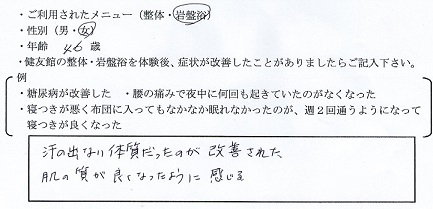 ・ご利用されたメニュー（整体・岩盤浴）
・性別（男・女）
・年齢 46 歳
・健友館の整体・岩盤浴を体験後、症状が改善したことがありましたらご記入下さい。
例
・糖尿病が改善した ・腰の痛みで夜中に何回も起きていたのがなくなった
・寝つきが悪く布団に入ってもなかなか眠れなかったのが、週２回通うようになって
寝つきが良くなった
汗の出ない体質だったのが 改善された
肌の質が 良くなったように 感じる